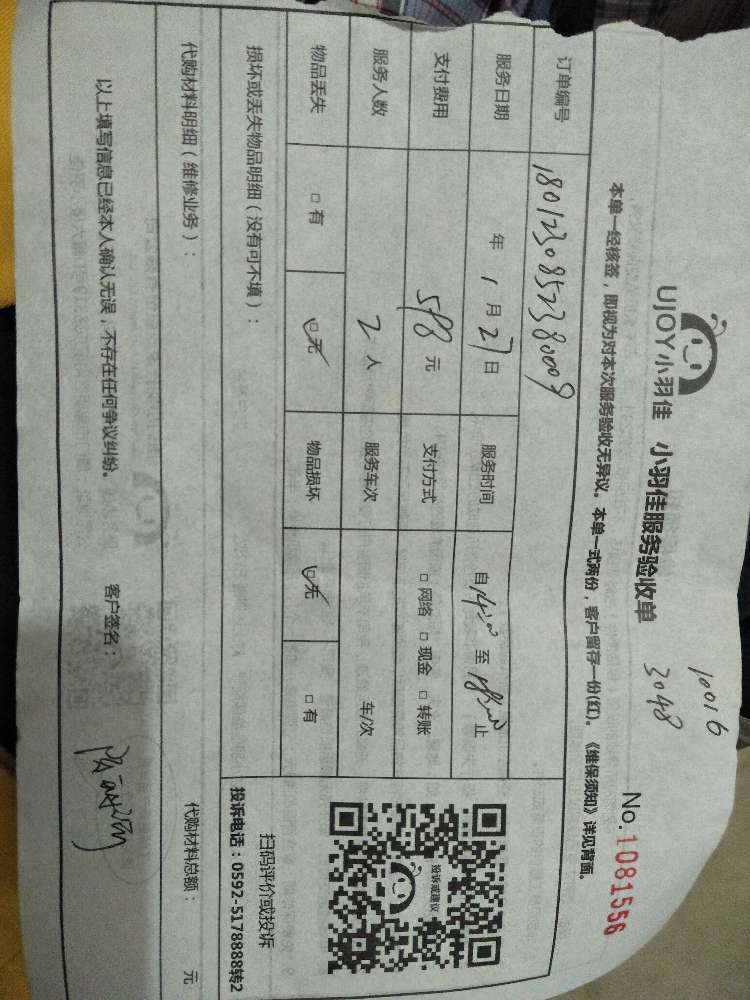 UJOY小羽佳 小羽佳服务验收单
10016
3048
No.1081556
本单一经核签，即视为对本次服务验收无异议。本单一式两份，客户留存一份(红)。《维保须知》详见背面。
订单编号 180123085238009
服务日期 年 1 月 27 日 服务时间 自 14:00 至 18:00 止
支付费用 598 元 支付方式 □ 网络 □ 现金 □ 转账
服务人数 2 人 服务车次 车/次
物品丢失 □ 有 ☑ 无 物品损坏 ☑ 无 □ 有
投诉或建议
扫码评价或投诉
投诉电话：0592-5178888转2
损坏或丢失物品明细（没有可不填）：
代购材料明细（维修业务）： 代购材料总额： 元
以上填写信息已经本人确认无误，不存在任何争议纠纷。 客户签名：